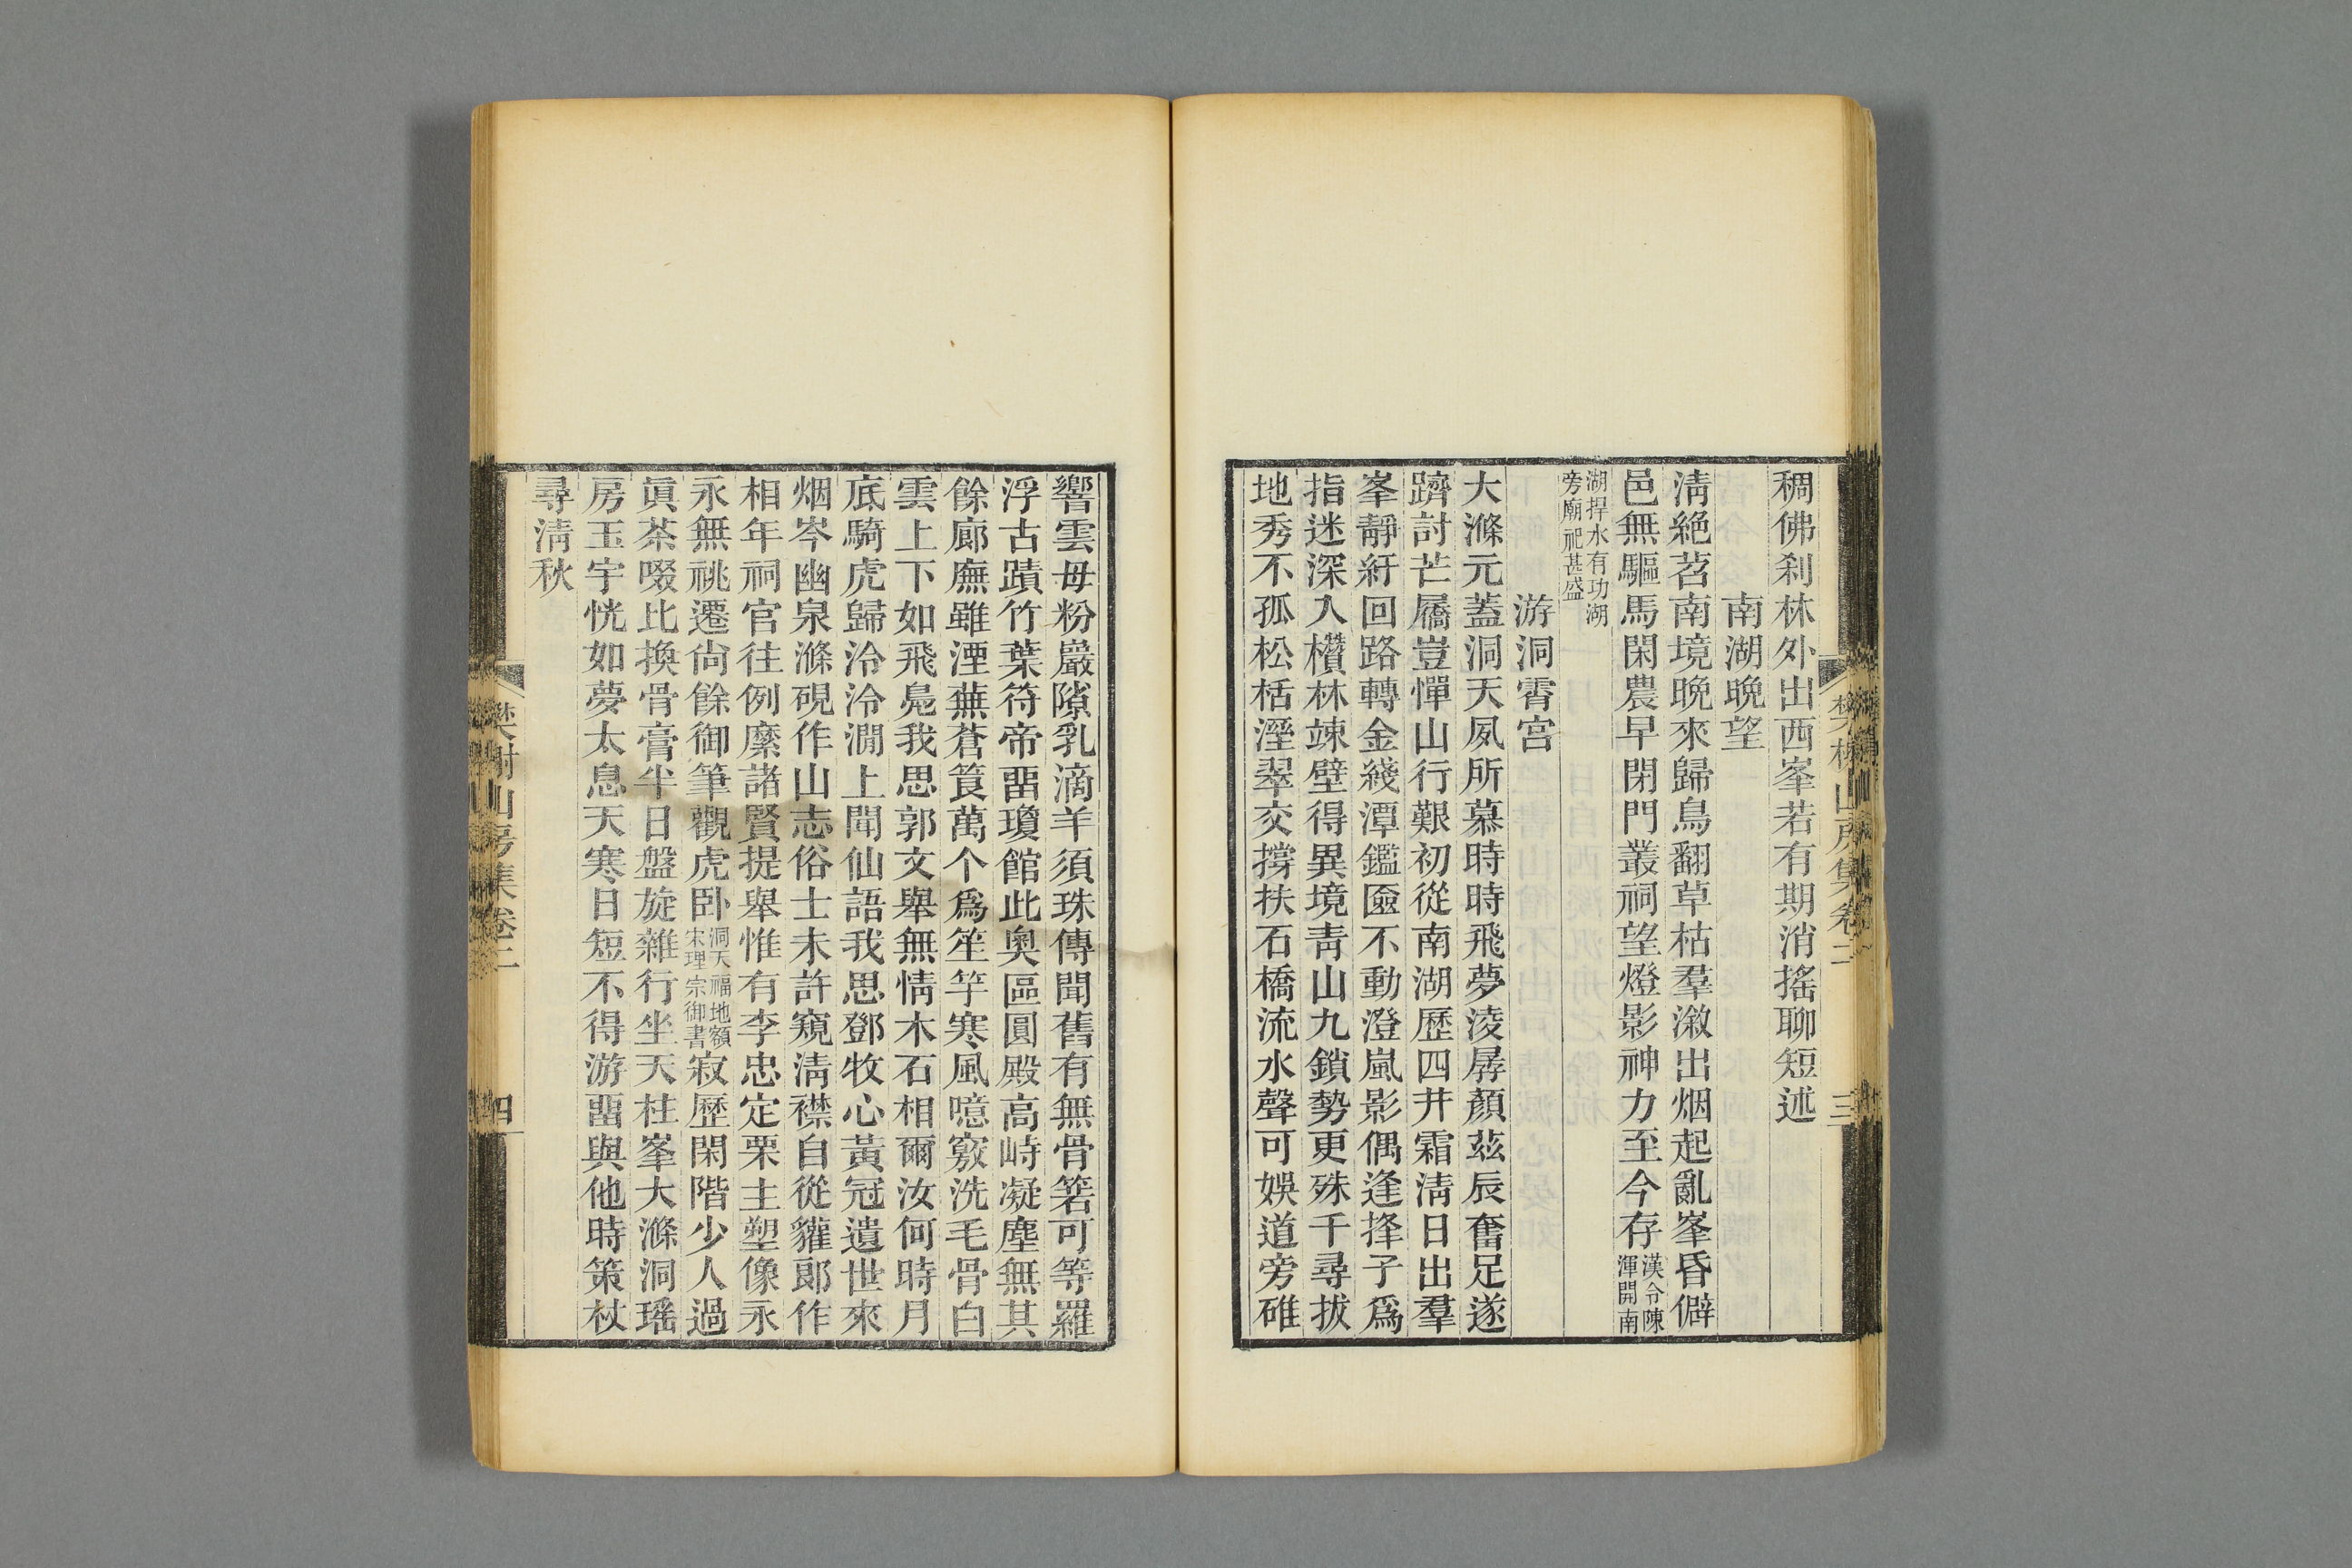 稠佛刹林外出西峯若有期消搖聊短述
南湖晚望
淸絶苕南境晚來歸鳥翻草枯羣潊出烟起亂峯昏僻
邑無驅馬閑農早閉門叢祠望燈影神力至今存漢令陳
渾開南
湖捍水有功湖
旁廟祀甚盛
游洞霄宮
大滌元蓋洞天夙所慕時時飛夢淩孱顏茲辰奮足遂
躋討芒屩豈憚山行艱初從南湖歷四井霜淸日出羣
峯靜紆回路轉金綫潭鑑匳不動澄嵐影偶逢擇子爲
指迷深入櫕林竦壁得異境靑山九鎖勢更殊千尋拔
地秀不孤松栝溼翠交撐扶石橋流水聲可娛道旁碓
響雲母粉巖隙乳滴羊須珠傳聞舊有無骨箬可等羅
浮古蹟竹葉符帝畱瓊館此奧區圓殿高峙凝塵無其
餘廊廡雖湮蕪蒼筤萬个爲笙竽寒風噫竅洗毛骨白
雲上下如飛鳧我思郭文舉無情木石相爾汝何時月
底騎虎歸泠泠澗上聞仙語我思鄧牧心黃冠遺世來
烟岑幽泉滌硯作山志俗士未許窺淸襟自從貛郞作
相年祠官往例縻諸賢提舉惟有李忠定栗主塑像永
永無祧遷尙餘御筆觀虎臥洞天福地額
宋理宗御書寂歷閑階少人過
眞茶啜比換骨膏半日盤旋雜行坐天柱峯大滌洞瑤
房玉宇恍如夢太息天寒日短不得游畱與他時策杖
尋淸秋
樊榭山房集卷二
三
樊榭山房集卷二
四